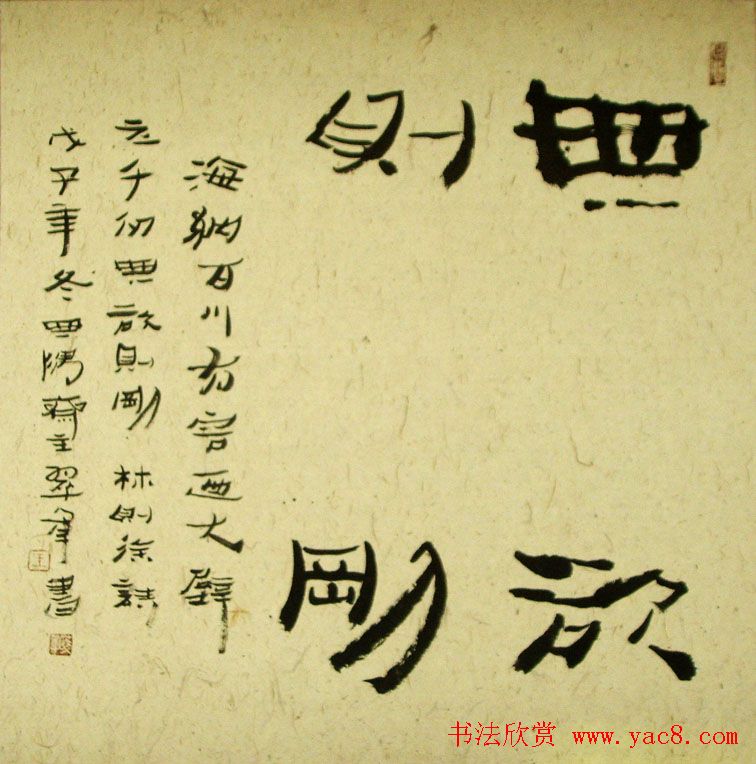 無欲
則剛
海納百川有容迺大壁
立千仞無欲則剛 林則徐
戊子年冬無隅齋主翠書
书法欣赏 www.yac8.com